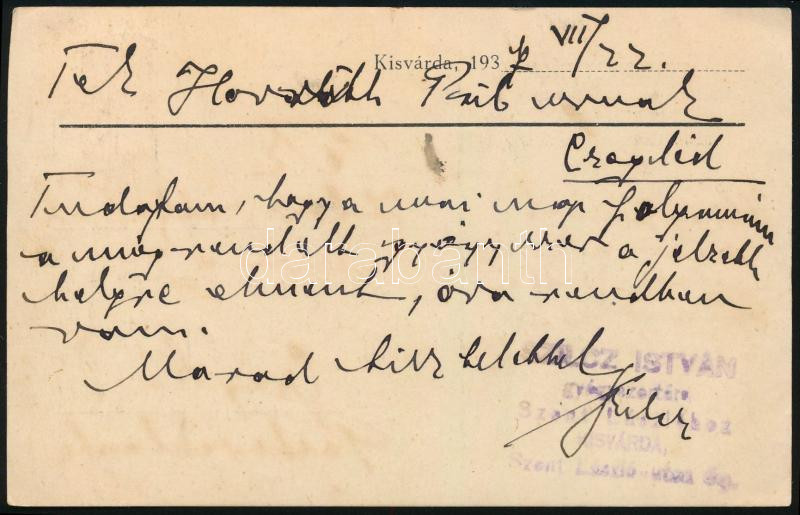 Kisvárda, 1937 VII/22.
Tek Horváth Pál urnak
Czegléd
Tudatom, hogy a mai nap folyamán
a megrendelt gyógyszer a jelzett
helyre elment, óra rendben
van.
Marad tisztelettel
ISTVÁN
gyógyszertára
Szent László
KISVÁRDA,
Szent László
darabanth